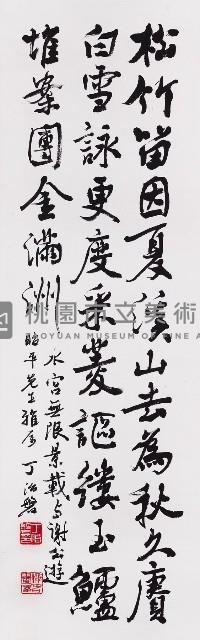 松竹留因夏溪山去為秋久賡
白雪詠更度采菱謳縷玉鱸
堆案團金滿洲
水宮無限景載与謝公遊
昭平先生雅屬
丁治磐
桃園市立美術館
TAOYUAN MUSEUM OF FINE ARTS